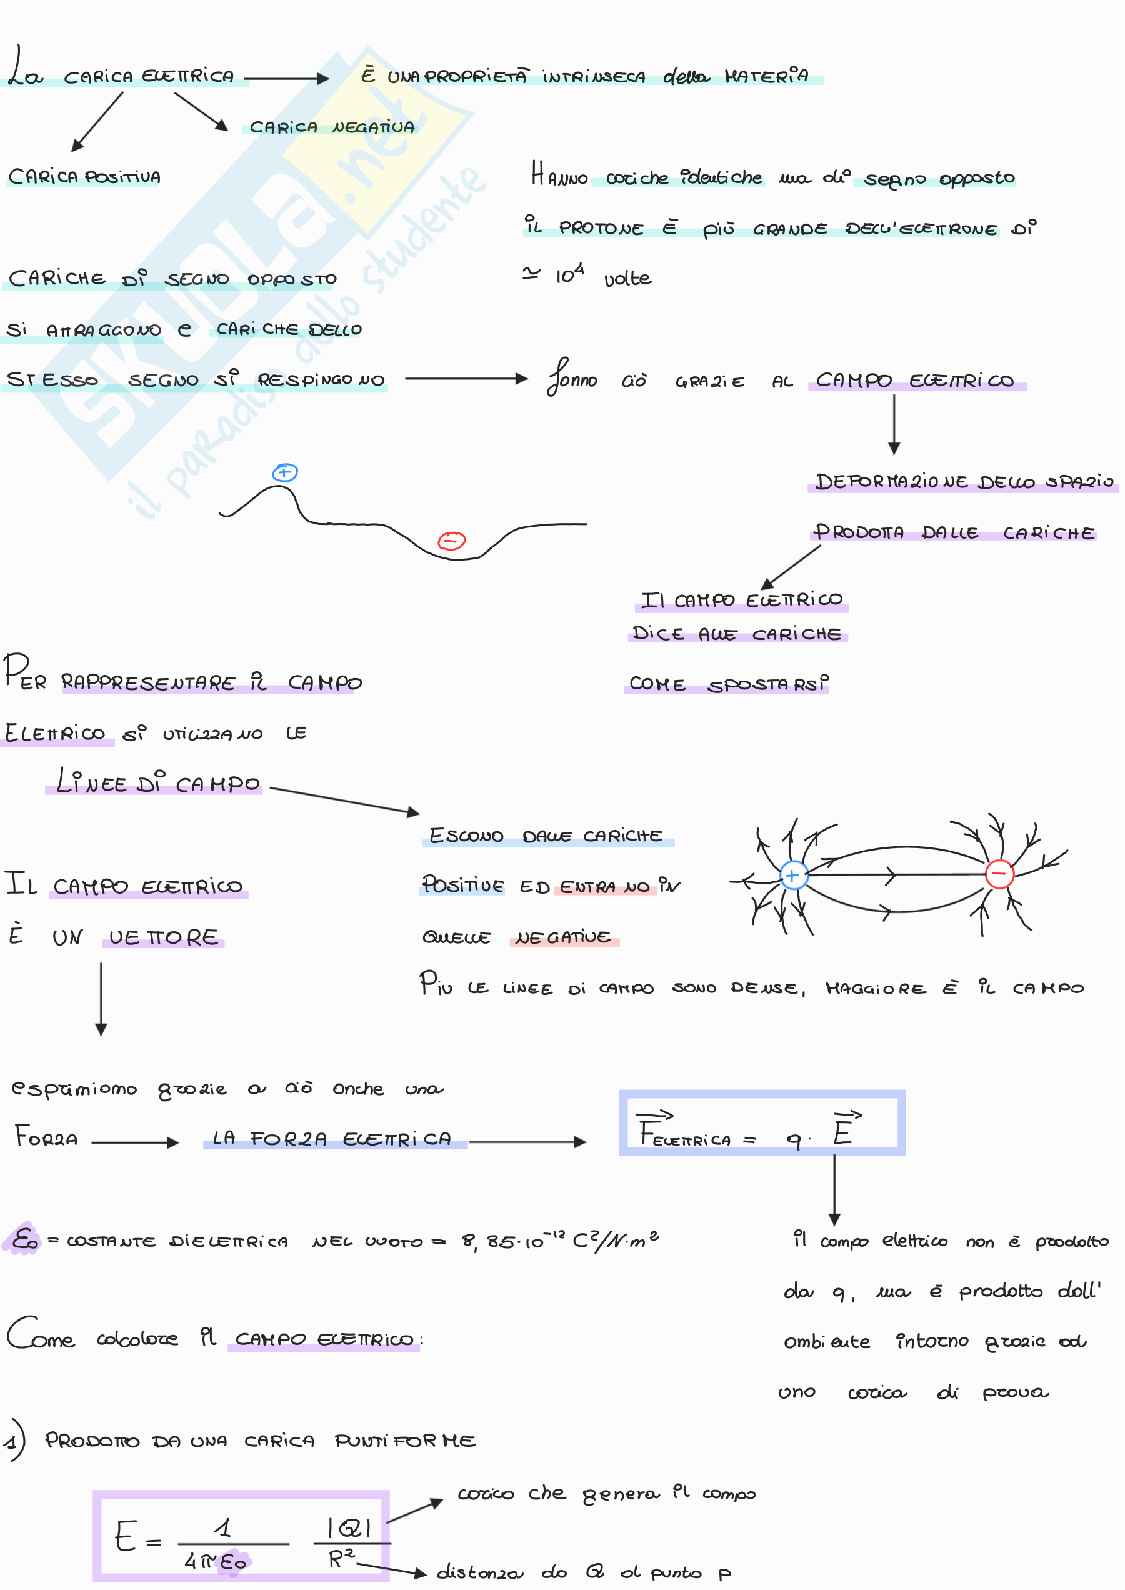 La CARICA ELETTRICA → È UNA PROPRIETÀ INTRINSECA della MATERIA
CARICA NEGATIVA
CARICA POSITIVA
HANNO cariche identiche ma di segno opposto
il PROTONE È più GRANDE DELL'ELETTRONE DI
≃ 10⁴ volte
CARICHE DI SEGNO OPPOSTO
SI ATTRAGGONO e CARICHE DELLO
STESSO SEGNO SI RESPINGONO → fanno ciò GRAZIE AL CAMPO ELETTRICO
DEFORMAZIONE DELLO SPAZIO
PRODOTTA DALLE CARICHE
+
−
Il CAMPO ELETTRICO
DICE ALLE CARICHE
COME SPOSTARSI
PER RAPPRESENTARE IL CAMPO
ELETTRICO SI UTILIZZANO LE
LINEE DI CAMPO
ESCONO DALLE CARICHE
POSITIVE ED ENTRANO IN
QUELLE NEGATIVE
PIU LE LINEE DI CAMPO SONO DENSE, MAGGIORE È IL CAMPO
+ −
IL CAMPO ELETTRICO
È UN VETTORE
esprimiamo grazie a ciò anche una
FORZA → LA FORZA ELETTRICA → F⃗ELETTRICA = q · E⃗
il campo elettrico non è prodotto
da q, ma è prodotto dall'
ambiente intorno grazie ad
una carica di prova
ε₀ = COSTANTE DIELETTRICA NEL VUOTO = 8,85·10⁻¹² C²/N·m²
Come calcolare il CAMPO ELETTRICO:
1) PRODOTTO DA UNA CARICA PUNTIFORME
E = 1/4πε₀ |Q|/R²
carica che genera il campo
distanza da Q al punto P
SKUOLA.net
il paradiso dello studente